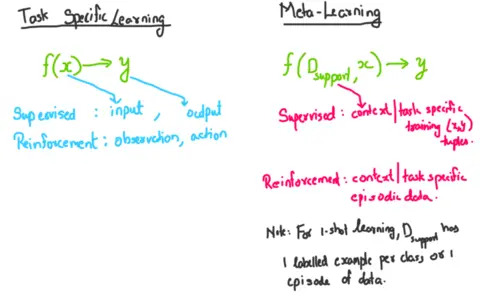 Task Specific Learning
f(x) → y
Supervised : input, output
Reinforcement : observation, action
Meta-Learning
f(D_support, x) → y
Supervised : context / task specific
training (x,y)
tuples.
Reinforcement : context / task specific
episodic data.
Note: For 1-shot learning, D_support has
1 labelled example per class, or 1
episode of data.